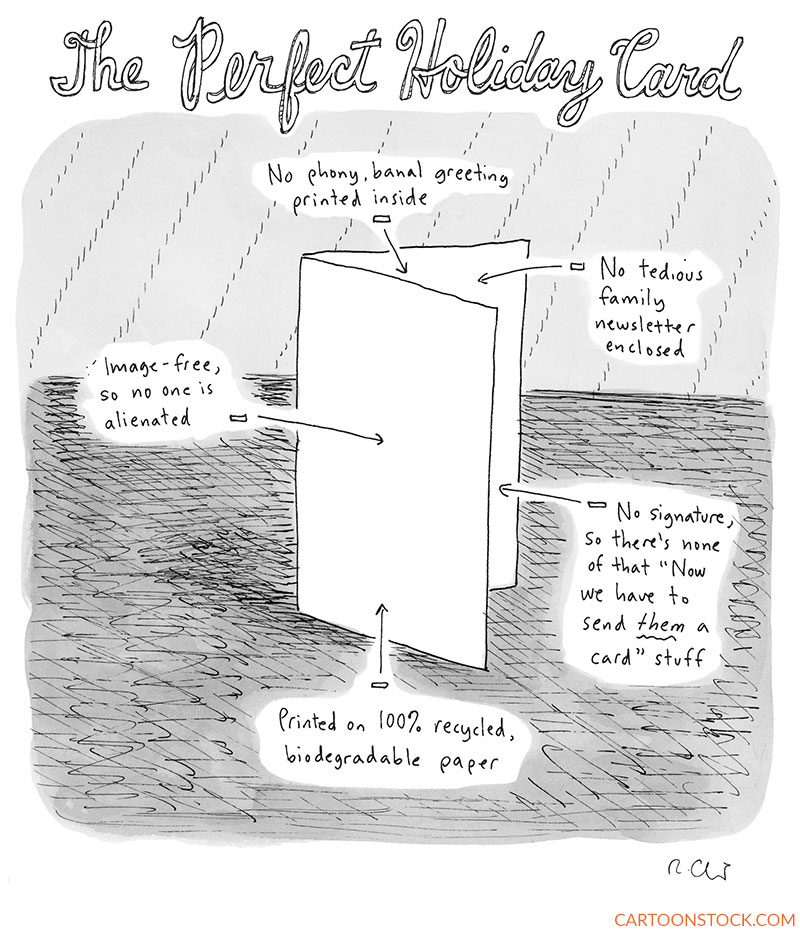 The Perfect Holiday Card
No phony, banal greeting
printed inside
No tedious
family
newsletter
enclosed
Image-free,
so no one is
alienated
No signature,
so there's none
of that "Now
we have to
send them a
card" stuff
Printed on 100% recycled,
biodegradable paper
CARTOONSTOCK.COM